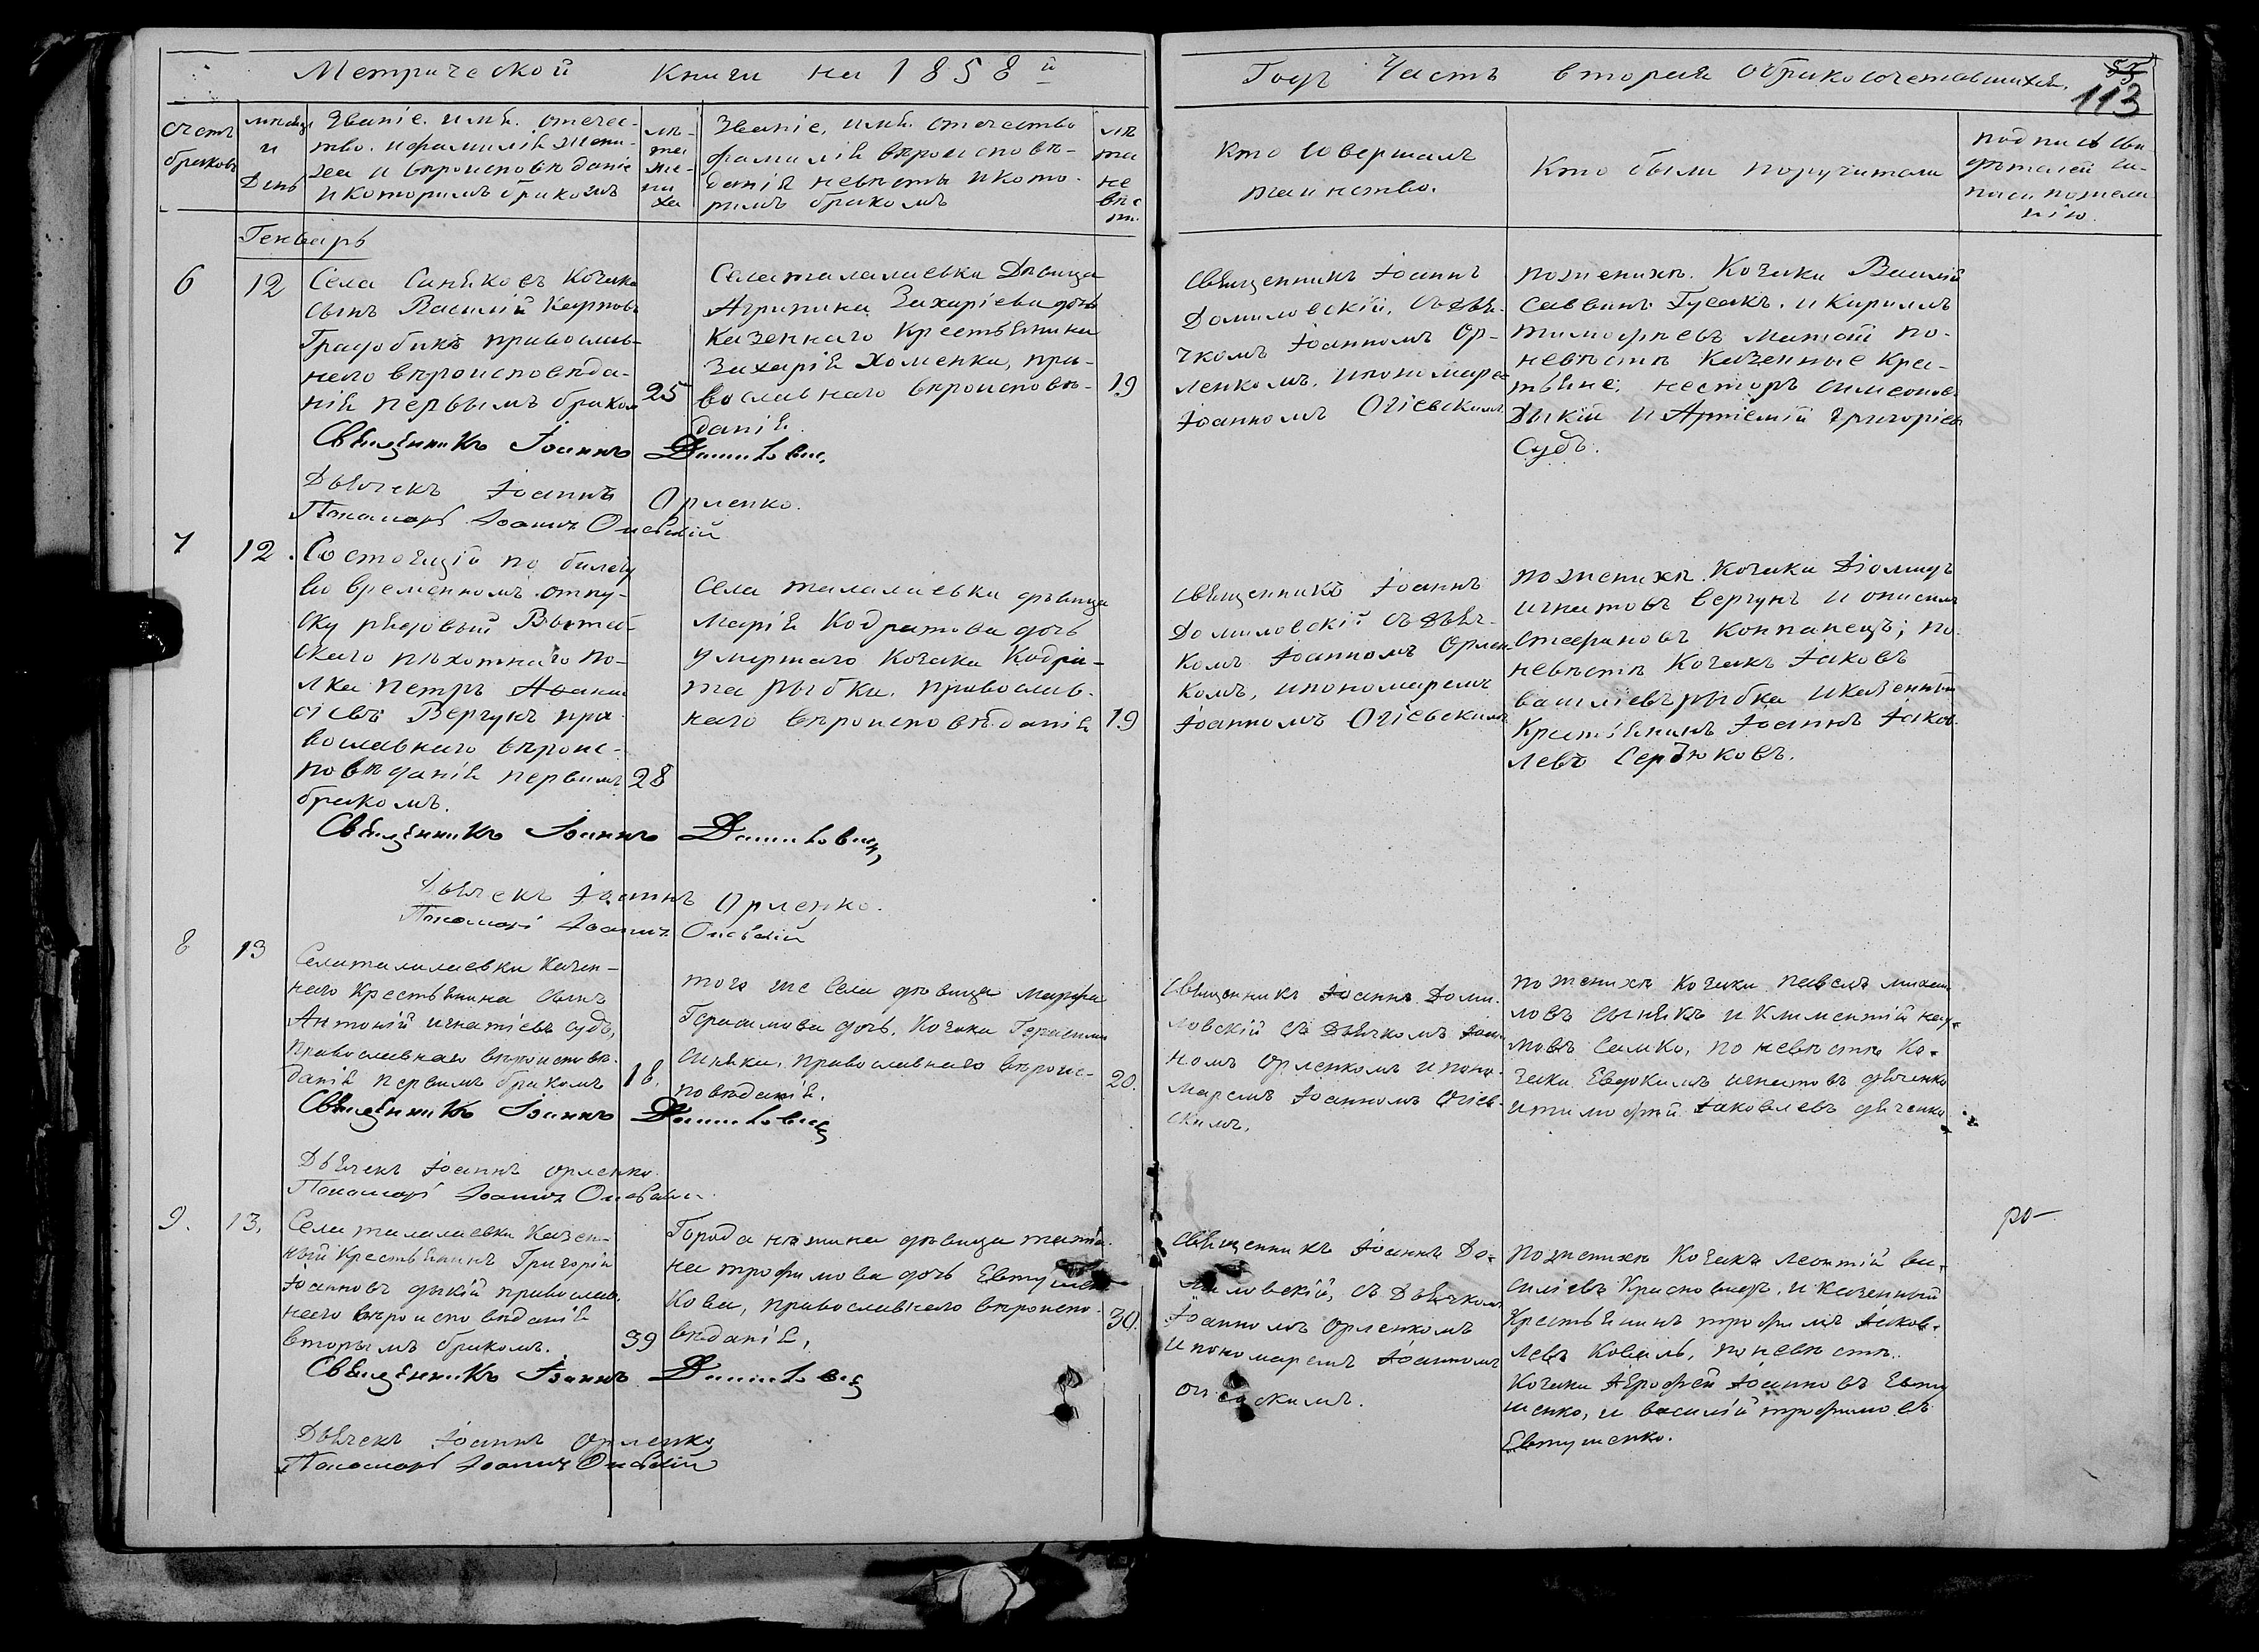 Метрической Книги на 1858й
Годъ Часть вторая о бракосочетавшихся.
113
счетъ
браковъ
мѣсяцъ
и
День
Званіе. имя. отечес-
тво. и фамилія жени-
ха и вѣроисповѣданіе
и которимъ бракомъ
лѣ-
та
же-
ни
ха
Званіе, имя. отечество
фамилія вѣроисповѣ-
данія невѣсты и кото-
римъ бракомъ
лѣ
та
не
вѣс
ти.
Кто совершалъ
таинство.
Кто были поручители
подпись сви
дѣтелей за-
писи по жела
нію.
Генварь
6
12
Села Синяковъ Козака
сынъ Василій Карповъ
православ-
наго вѣроисповѣда-
нія первымъ браком
25
Священникъ Іоаннъ
Дьячекъ Іоаннъ Орленко.
Пономарь Іоаннъ Огіевскій
Села талалаевки Дѣвица
Агрипина Захаріева дочь
Казеннаго Крестьянина
Захарія Хоменка, пра-
вославнаго вѣроисповѣ-
данія.
19
Священникъ Іоаннъ
Домиловскій, съ дья-
чкомъ Іоанномъ Ор-
ленкомъ, и пономарем
Іоанномъ Огіевскимъ
по женихѣ. Козаки Василій
Саввинъ Гусакъ. и Кириллъ
тимофѣевъ по-
невѣстѣ Казенные Крес-
тьяне; несторъ симеонов
Дыкій и Артіемій Григоріев
Судъ.
7
12.
Состоящій по билету
во временномъ отпу-
ску рядовый
скаго пѣхотнаго по-
лка петръ Афана
сіевъ Вергунъ пра-
вославнаго вѣроис-
повѣданія первимъ
бракомъ.
28
Священникъ Іоаннъ
Дьячекъ Іоаннъ Орленко.
Пономарь Іоаннъ Огіевскій
Села талалаевки дѣвица
Марія Кодратова дочь
умершаго Козака Кодра-
та рыбки. православ-
наго вѣроисповѣданія
19
Священникъ Іоаннъ
Домиловскій съ дьяч-
комъ Іоанномъ Орлен
комъ, и пономаремъ
Іоанномъ Огіевскимъ
по женихѣ. Козаки Діомидъ
игнатовъ вергунъ и онисимъ
стефановъ Компанецъ; по-
невѣстѣ Козакъ Іаковъ
василіевъ рыбка и казенный
Крестіянинъ Іоаннъ Іаков
левъ Сердюковъ.
8
13
Села талалаевки Казен-
наго Крестьянина сынъ
Антоній игнатіевъ судъ,
православнаго вѣроисповѣ-
данія первимъ бракомъ
18.
Священникъ Іоаннъ
Дьячекъ Іоаннъ Орленко
Пономарь Іоаннъ Огіевскій
того же Села дѣвица марфа
Герасимова дочь. Козака Герасима
синяки, православнаго вѣроис-
повѣданія.
20.
Священникъ Іоаннъ Доми-
ловскій съ дьячкомъ Іоан-
номъ орленкомъ и поно-
маремъ Іоанномъ Огіев-
скимъ.
по женихѣ Козаки павелъ михаи
ловъ синякъ и Климентій
мовъ Самко, по невѣстѣ Ко-
заки Евдокимъ игнатовъ дяченко
и тимофѣй Іаковлевъ дяченко
9.
13.
Села талалаевки Казен-
ный Крестьянинъ Григорій
Іоанновъ дыкій православ-
наго вѣроисповѣданія
вторымъ бракомъ.
39
Священникъ Іоаннъ
Дьячекъ Іоаннъ Орленко
Пономарь Іоаннъ Огіевскій
Города нѣжина дѣвица татія-
на трофимова дочь
кова, православнаго вѣроиспо-
вѣданія,
30.
Священникъ Іоаннъ До-
миловскій, съ Дьячкомъ
Іоанномъ Орленкомъ
и пономаремъ Іоанномъ
огіевскимъ.
по женихѣ Козакъ леонтій ва-
силіевъ и казенный
Крестьянинъ трофимъ Іаков-
левъ Коваль, по невѣстѣ
Козаки Іерофей Іоанновъ Евту
шенко, и василій трофимовъ
Евтушенко.